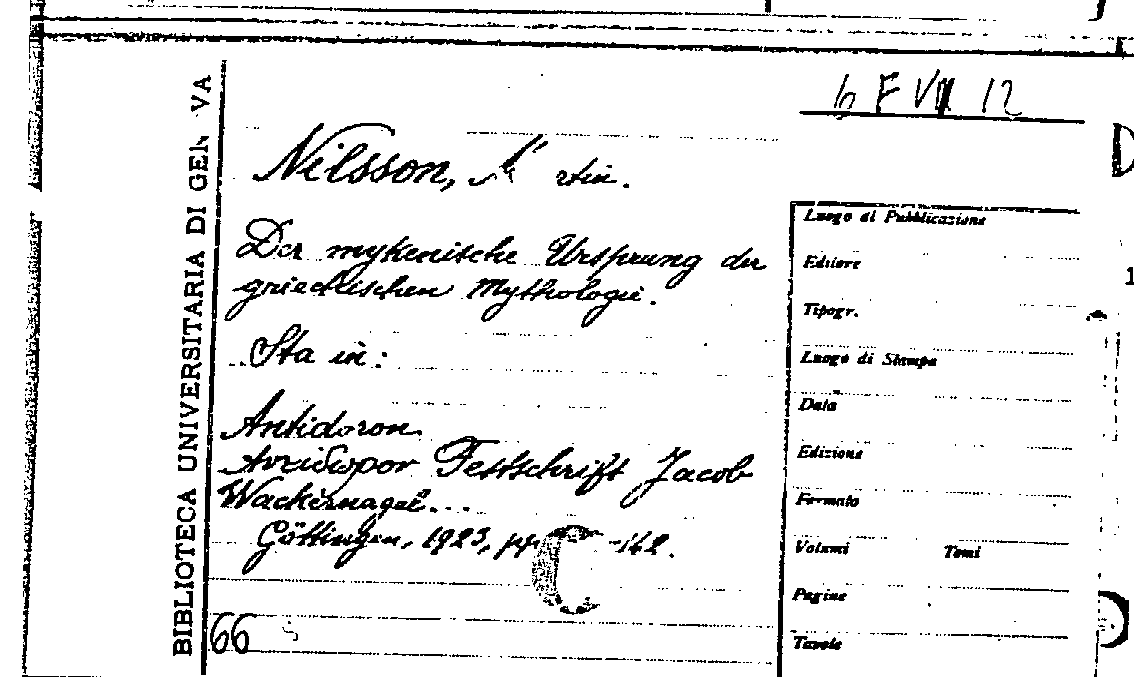 6 F VII 12
BIBLIOTECA UNIVERSITARIA DI GEN VA
Nilsson, M rtin.
Der mykenische Ursprung der
griechischen Mythologie.
Sta in:
Antidoron.
Ἀντίδωρον Festschrift Jacob
Wackernagel...
Göttingen, 1923, pp -142.
66
Luogo di Pubblicazione
Editore
Tipogr.
Luogo di Stampa
Data
Edizione
Formato
Volumi Tomi
Pagine
Tavole